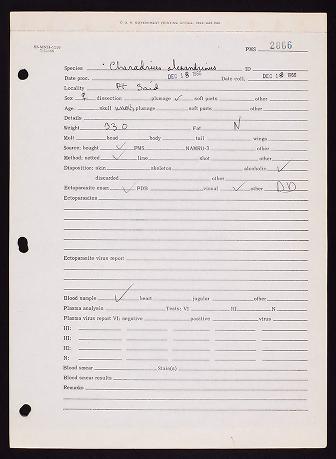 U. S. GOVERNMENT PRINTING OFFICE
PMS 2866
Species Charadrius alexandrinus ID
Date proc. DEC 18 Date coll. DEC 18 1966
Locality Pt Said
Sex ♀ dissection plumage ✓ soft parts other
Age skull plumage soft parts other
Details
Weight 33.0 Fat N
Molt: head body tail wings
Source: bought ✓ PMS NAMRU-3 other
Method: netted ✓ line shot other
Disposition: skin skeleton alcoholic ✓
discarded other
Ectoparasite exam ✓ PDB visual ✓ other DD
Ectoparasites
Ectoparasite virus report
Blood sample ✓ heart jugular other
Plasma analysis Tests: VI HI N
Plasma virus report VI: negative positive virus
HI:
HI:
HI:
N:
Blood smear Stain(s)
Blood smear results
Remarks